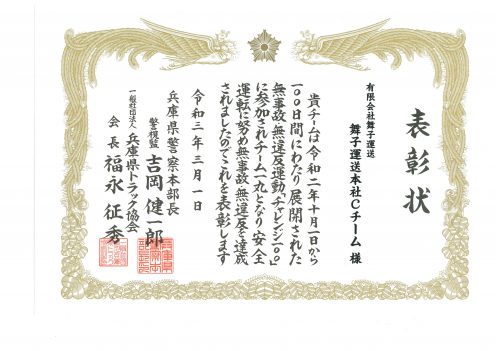 表彰状
有限会社舞子運送
舞子運送本社Cチーム 様
貴チームは令和二年十月一日から
一〇〇日間にわたり展開された
無事故・無違反運動「チャレンジ一〇〇」
に参加されチーム一丸となり安全
運転に努め無事故・無違反を達成
されましたのでこれを表彰します
令和三年三月一日
兵庫県警察本部長
警視監 吉岡健一郎
一般社団法人 兵庫県トラック協会
会長 福永征秀